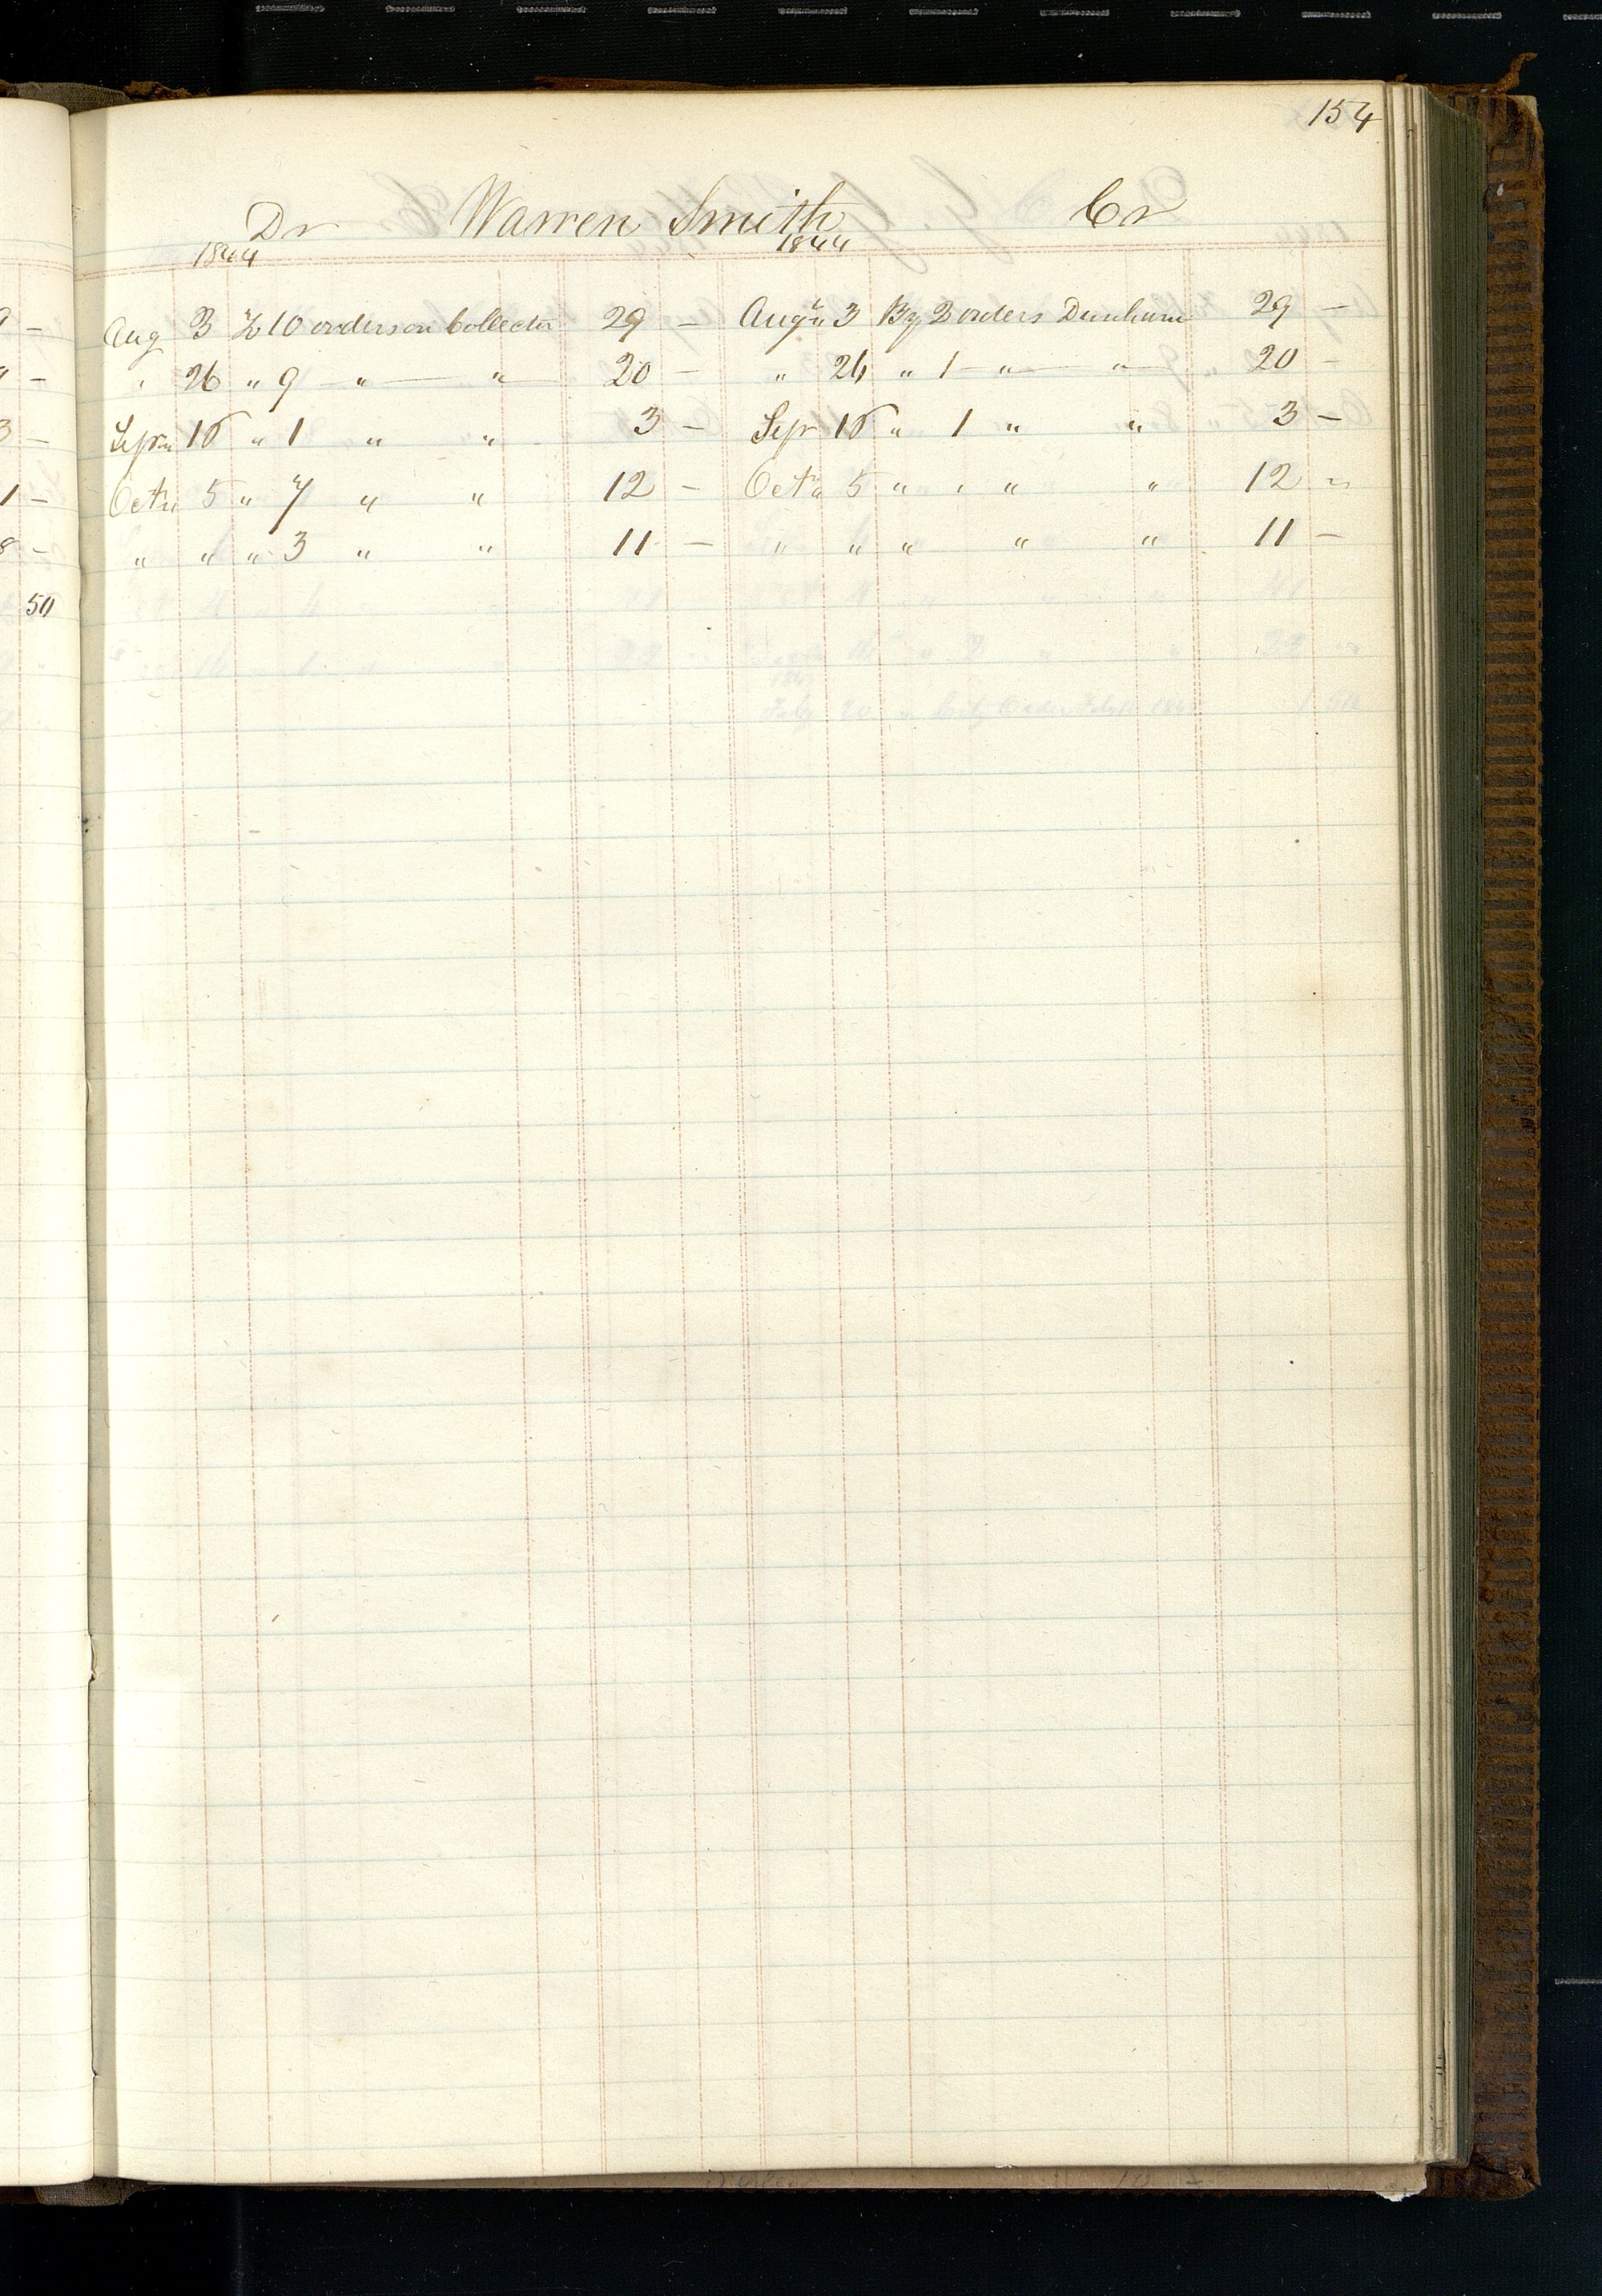 154
Dr Warren Smith Cr
1844 1844
Aug 3 To 10 orders on Collector 29 – Augu 3 By 2 orders Dunham 29 –
" 26 " 9 " " 20 – " 26 " 1 " " 20 –
Sepr 16 " 1 " " 3 – Sepr 16 " 1 " " 3 –
Octr 5 " 7 " " 12 – Octr 5 " " " " 12 "
" " " 3 " " 11 – " " " " " 11 –
50